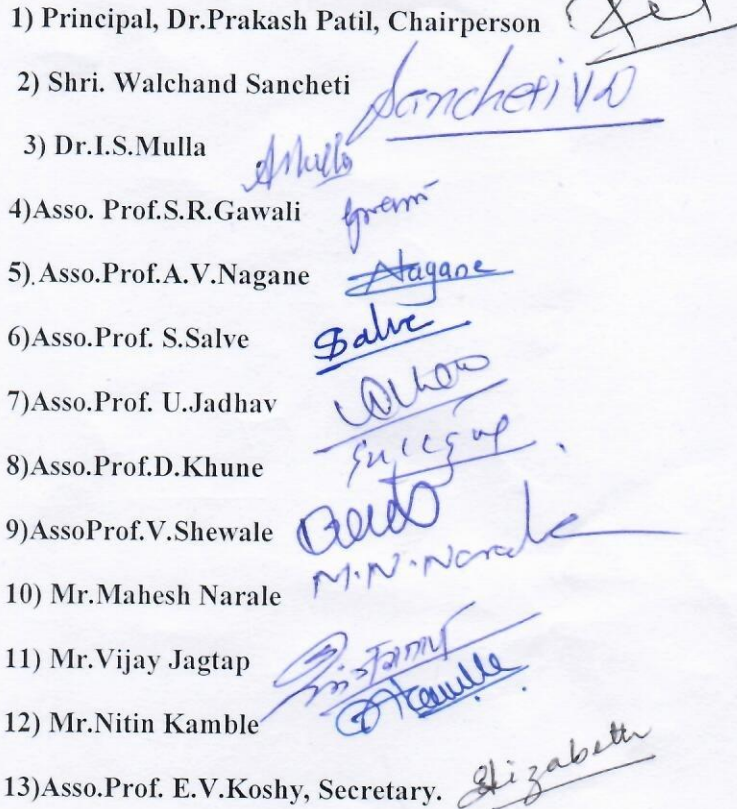 1) Principal, Dr.Prakash Patil, Chairperson
2) Shri. Walchand Sancheti Sancheti V D
3) Dr.I.S.Mulla AMulla
4)Asso. Prof.S.R.Gawali
5).Asso.Prof.A.V.Nagane Nagane
6)Asso.Prof. S.Salve Salve
7)Asso.Prof. U.Jadhav
8)Asso.Prof.D.Khune
9)AssoProf.V.Shewale
10) Mr.Mahesh Narale M.N.Narale
11) Mr.Vijay Jagtap
12) Mr.Nitin Kamble Kamble
13)Asso.Prof. E.V.Koshy, Secretary. Elizabeth